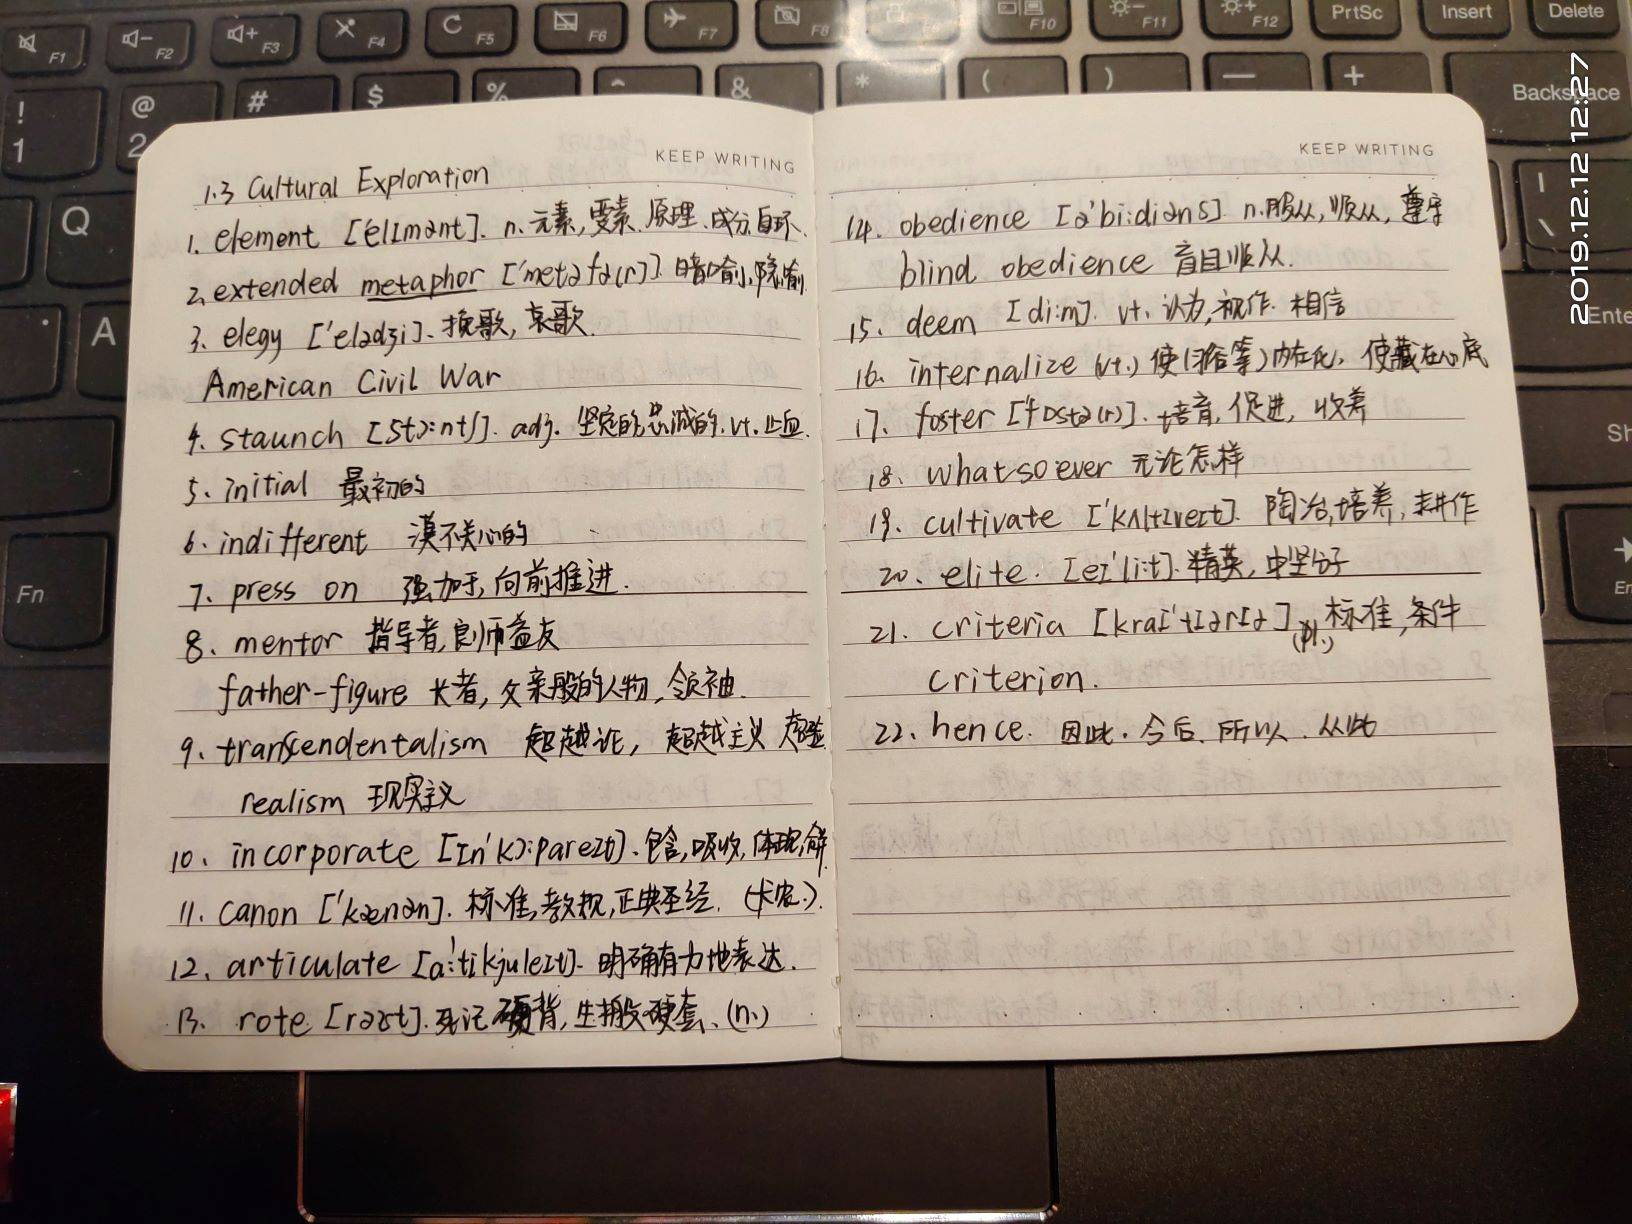 KEEP WRITING
1.3 Cultural Exploration
1. element [ˈelɪmənt]. n. 元素, 要素. 原理. 成分. 自环.
2. extended metaphor ['metəfə(r)] 暗喻, 隐喻.
3. elegy ['elədʒi]. 挽歌, 哀歌.
American Civil War
4. staunch [stɔ:ntʃ]. adj. 坚定的, 忠诚的. vt. 止血.
5. initial 最初的
6. indifferent 漠不关心的
7. press on 强加于, 向前推进.
8. mentor 指导者, 良师益友
father-figure 长者, 父亲般的人物, 领袖.
9. transcendentalism 超越论, 超越主义 超验
realism 现实主义
10. incorporate [ɪn'kɔ:pəreɪt]. 包含, 吸收, 体现,
11. canon ['kænən]. 标准, 教规, 正典圣经. (卡农.)
12. articulate [ɑ:'tɪkjuleɪt]. 明确有力地表达.
13. rote [rəʊt]. 死记硬背, 生搬硬套. (n.)
KEEP WRITING
14. obedience [ə'bi:diəns]. n. 服从, 顺从, 遵守
blind obedience 盲目顺从.
15. deem [di:m]. vt. 认为, 视作. 相信
16. internalize (vt.) 使(习俗等)内在化, 使藏在心底
17. foster ['fɒstə(r)]. 培育, 促进, 收养
18. whatsoever 无论怎样
19. cultivate ['kʌltɪveɪt]. 陶冶, 培养, 耕作
20. elite. [eɪ'li:t]. 精英, 中坚分子
21. criteria [kraɪ'tɪərɪə] (pl.) 标准, 条件
criterion.
22. hence. 因此. 今后. 所以. 从此
2019.12.12 12:27
F1 F2 F3 F4 F5 F6 F7 F8 F10 F11 F12 PrtSc Insert Delete
! @ # $ % & * ( ) — + Backspace
1 2
Q
A
Fn